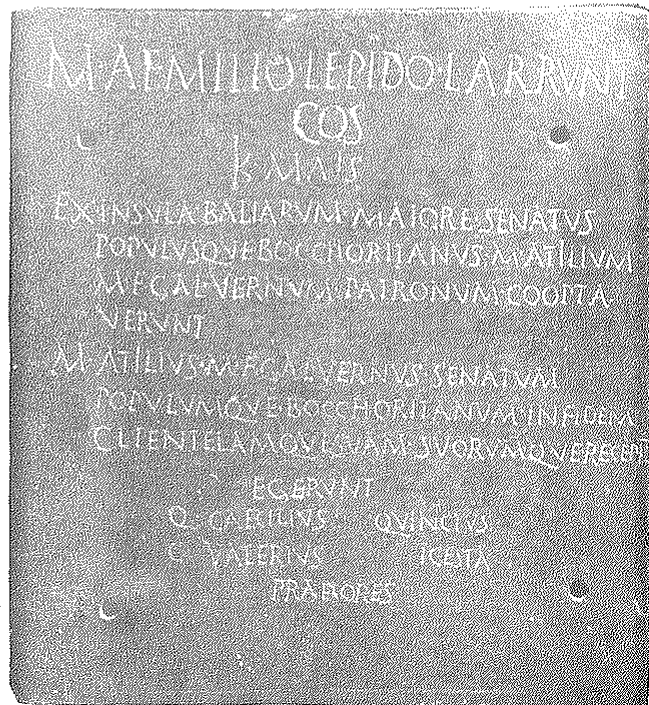 M·AEMILIO LEPIDO·L ARRVNT
COS
K MAIS
EX INSVLA BALIARVM MAIORE SENATVS
POPVLVSQVE BOCCHORITANVS M ATILIVM
M F GAL VERNVM PATRONVM COOPTA
VERVNT
M·ATILIVS·M F GAL VERNVS SENATVM
POPVLVMQVE BOCCHORITANVM IN FIDEM
CLIENTELAMQVE SVAM SVORVMQVE RECEPIT
EGERVNT
Q CAECILIVS QVINCTVS
C VALERIVS ICESTA
PRAETORES